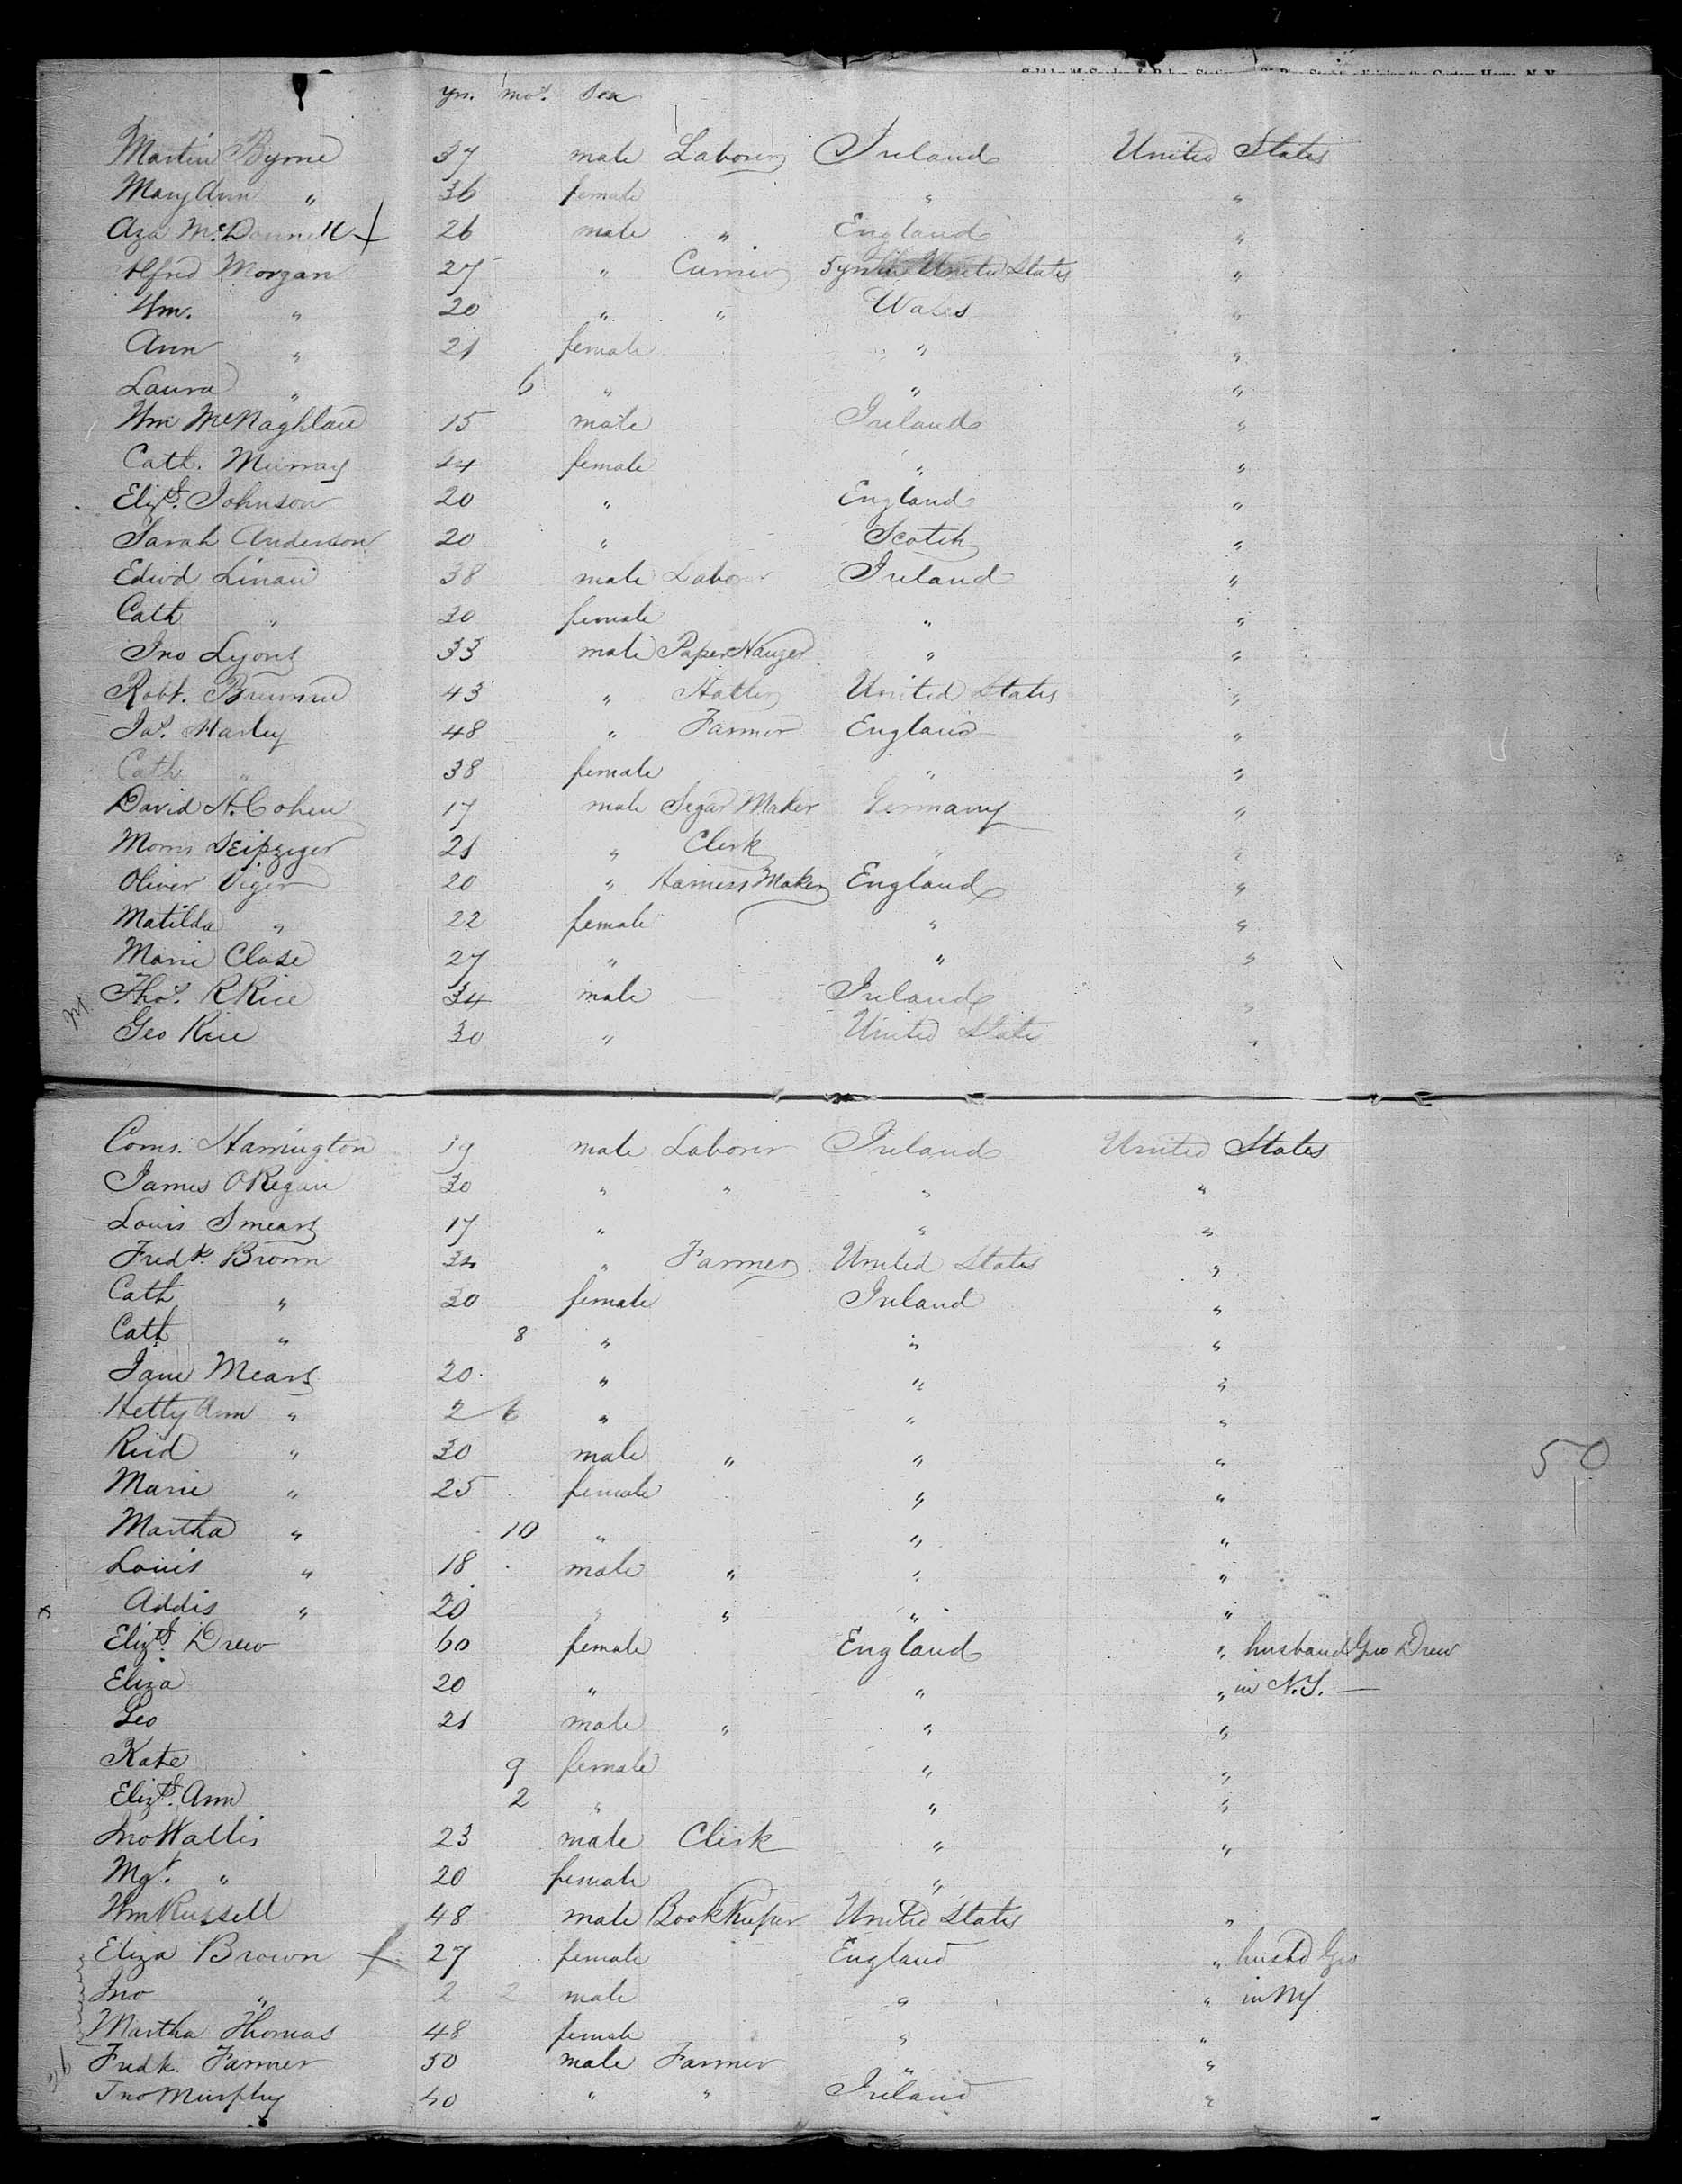 yrs. mos. Sex
Martin Byrne 37 male Laborer Ireland United States
Mary Ann " 36 female " "
Aza McDonnell 26 male " England "
Alfred Morgan 27 " Currier 5 yrs in United States "
Wm. " 20 " " Wales "
Ann " 21 female " "
Laura " 6 " " "
Wm 15 male Ireland "
Cath. Murray 24 female " "
Elizth. Johnson 20 " England "
Sarah Anderson 20 " Scotch "
Edwd 38 male Laborer Ireland "
Cath " 30 female " "
Jno Lyons 33 male Paper Hanger " "
Robt. 43 " Hatter United States "
Jas. Harley 48 " Farmer England "
Cath " 38 female " "
David H. Cohen 17 male Segar Maker Germany "
Morris Leipziger 21 " Clerk " "
Oliver Viger 20 " Harness Maker England "
Matilda " 22 female " "
Marie Close 27 " " "
Thos. R Rice 34 male Ireland "
Geo Rice 30 " United States "
Corns. Harrington 19 male Laborer Ireland United States
James O Regan 30 " " " "
Louis Smears 17 " " "
Fredk. Brown 34 " Farmer United States "
Cath " 30 female Ireland "
Cath " 8 " " "
Jane Mears 20 " " "
Hetty Ann " 2 6 " " "
Reid " 30 male " " "
Marie " 25 female " "
Martha " 10 " " "
Louis " 18 male " " "
Addis " 20 " " " "
Elizth. Drew 60 female England " husband Geo Drew
Eliza 20 " " " in N.Y. —
Geo 21 male " " "
Kate 9 female " "
Elizth. Ann 2 " " "
Jno Wallis 23 male Clerk " "
Mgt. " 20 female "
Wm Russell 48 male BookKeeper United States "
Eliza Brown 27 female England " husbd Geo
Jno " 2 2 male " " in NY
Martha Thomas 48 female " "
Fredk. Farmer 50 male Farmer " "
Jno Murphy 40 " " Ireland "
50